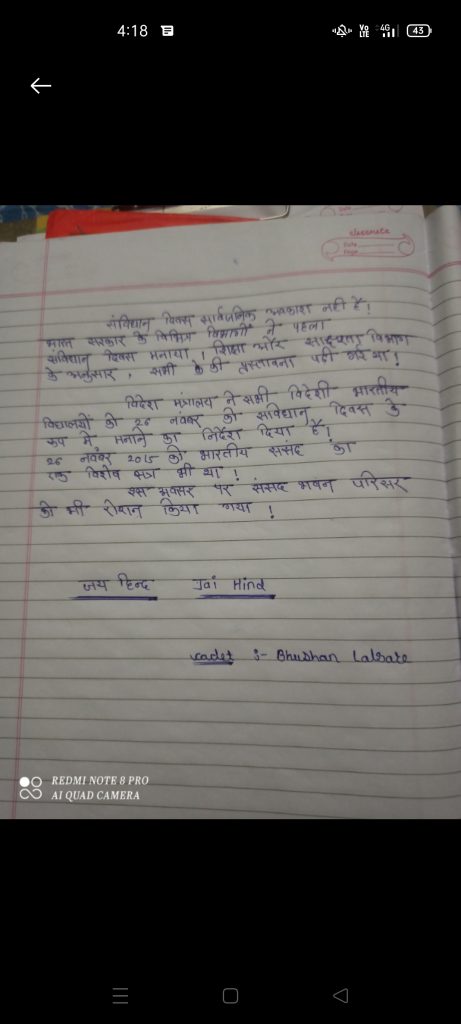 4:18
Vo LTE 4G 43
classmate
Date
Page
संविधान दिवस सार्वजनिक अवकाश नही है!
भारत सरकार के विभिन्न विभागों ने पहला
संविधान दिवस मनाया। शिक्षा और साक्षरता विभाग
के अनुसार, सभी की प्रस्तावना पढी गई था!
विदेश मंत्रालय ने सभी विदेशी भारतीय
विद्यालयों को 26 नवंबर को संविधान दिवस के
रूप में, मनाने का निर्देश दिया है।
26 नवंबर 2015 को भारतीय संसद का
एक विशेष सत्र भी था!
इस अवसर पर संसद भवन परिसर
को भी रोशन किया गया!
जय हिन्द Jai Hind
cadet :- Bhushan
REDMI NOTE 8 PRO
AI QUAD CAMERA